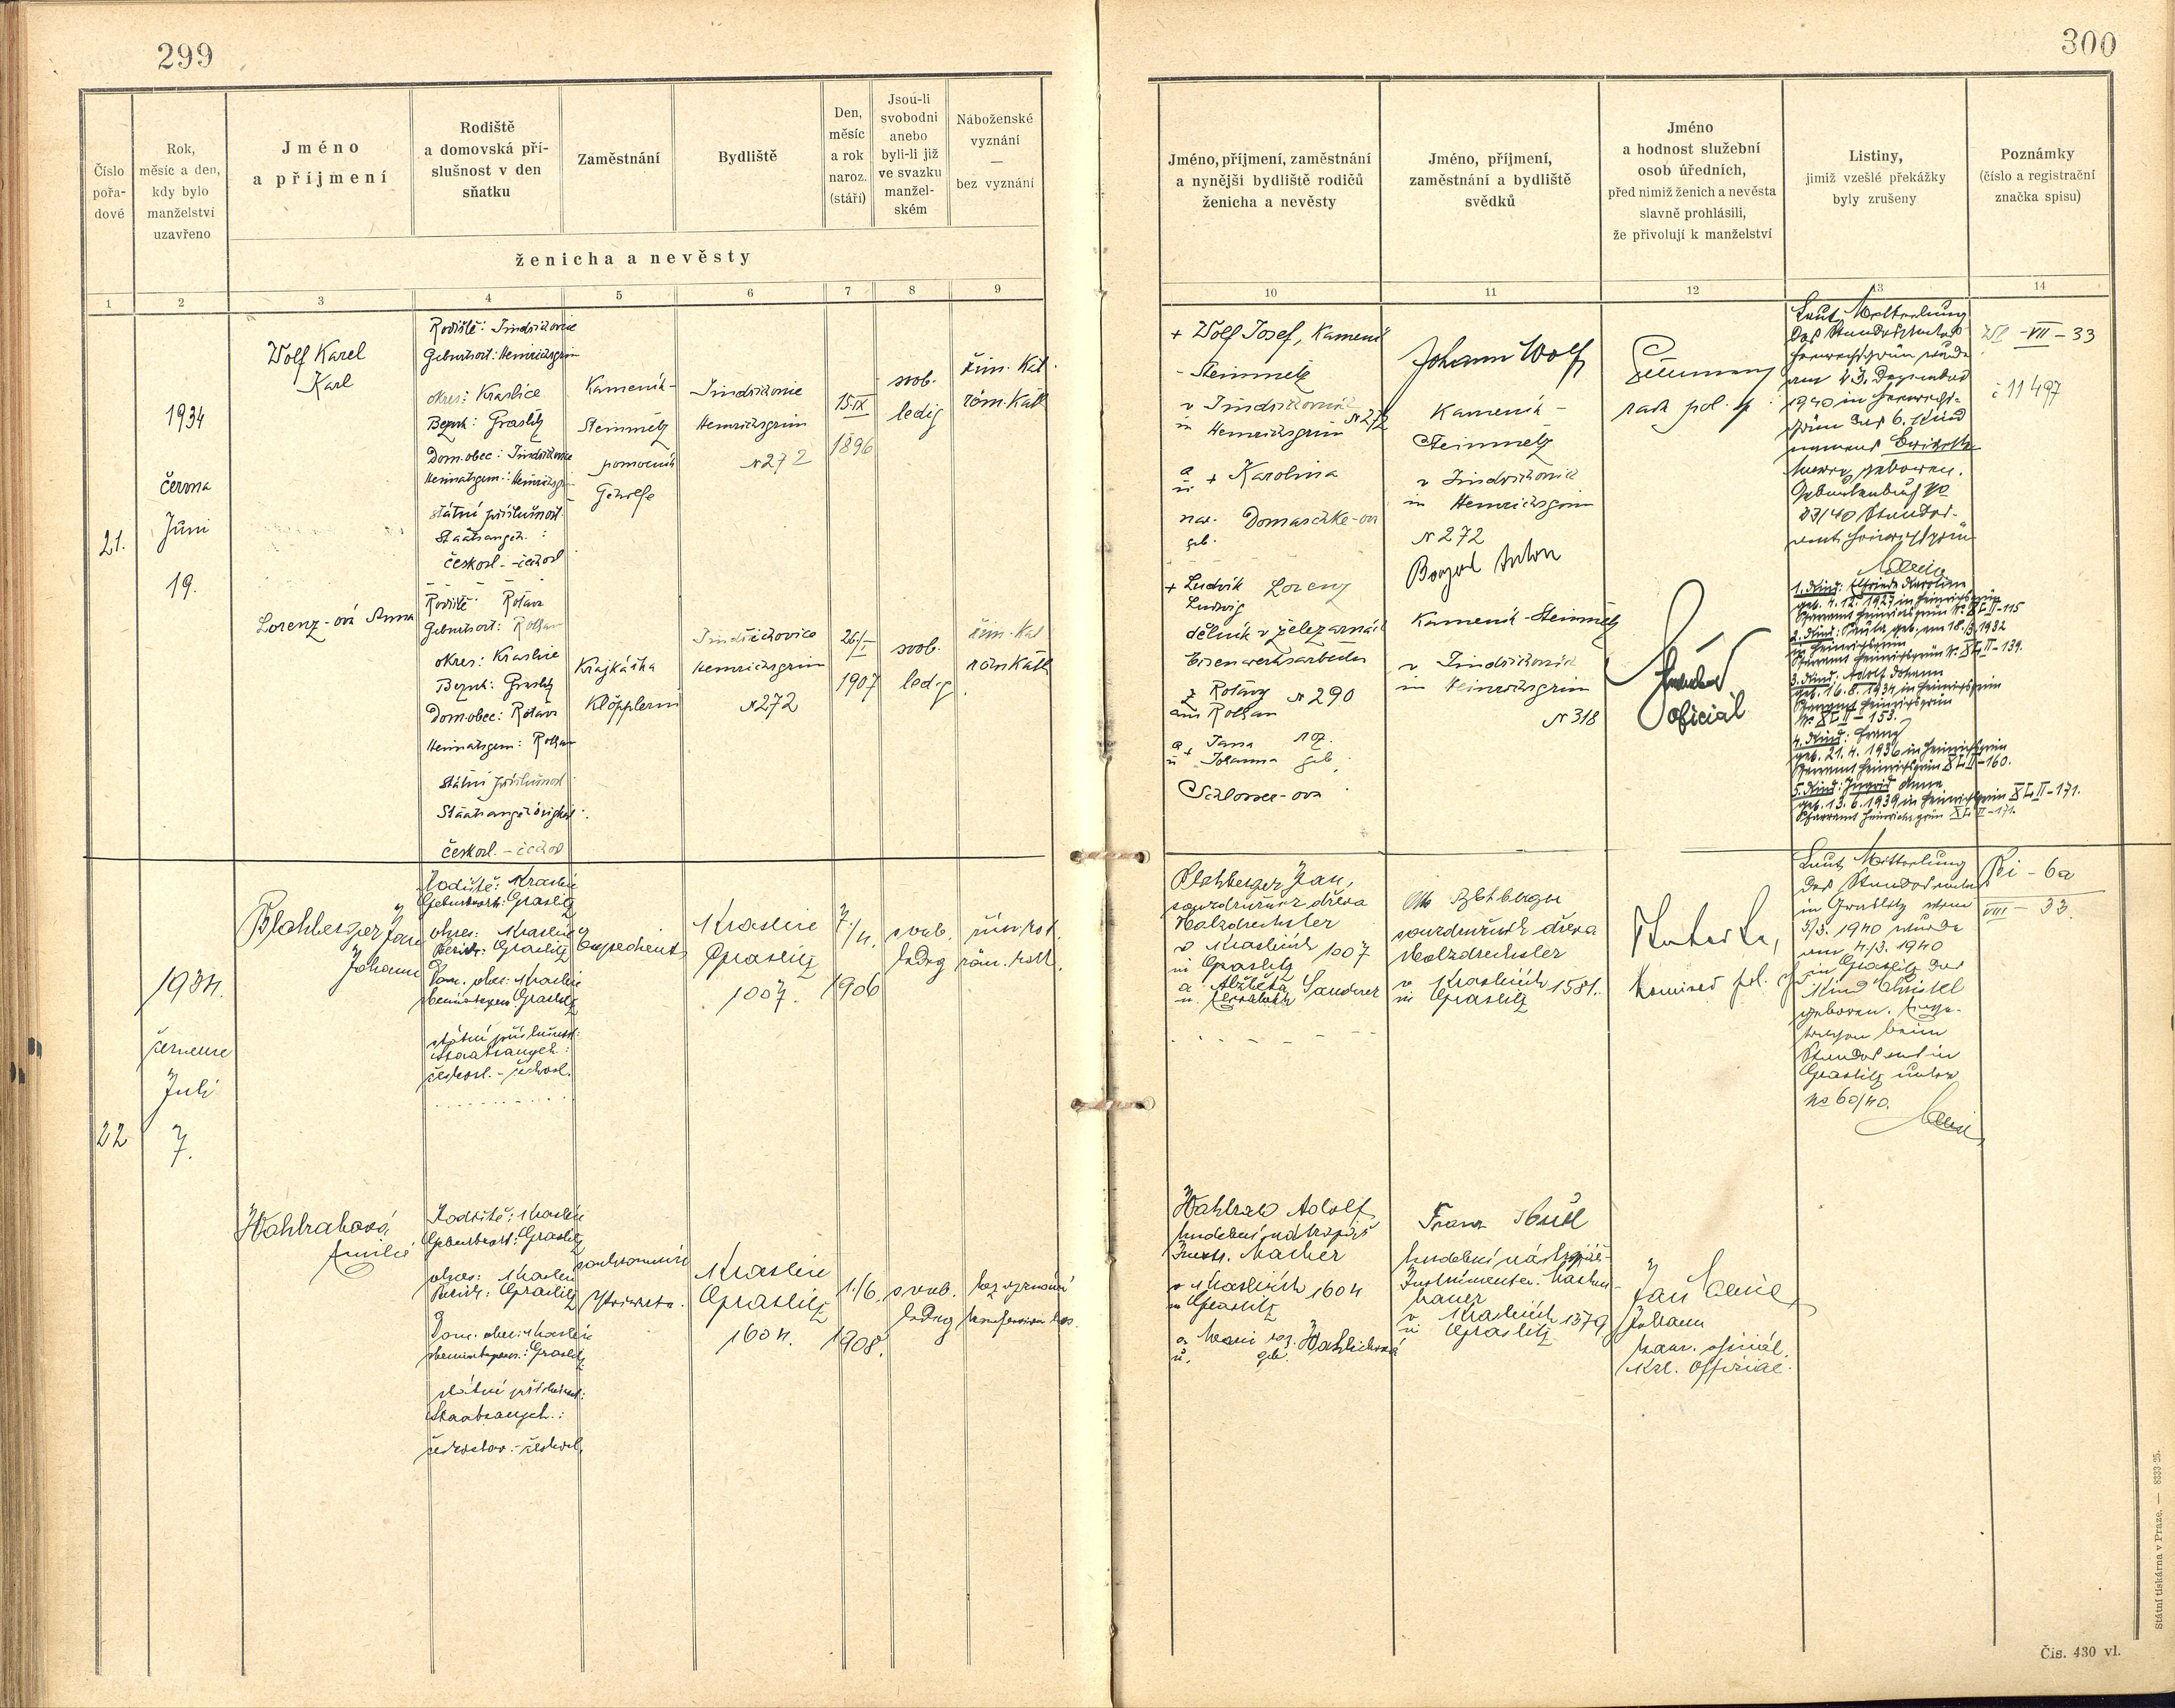 299
Číslo
pořa-
dové
Rok,
měsíc a den,
kdy bylo
manželství
uzavřeno
Jméno
a příjmení
Rodiště
a domovská pří-
slušnost v den
sňatku
Zaměstnání
Bydliště
Den,
měsíc
a rok
naroz.
(stáří)
Jsou-li
svobodni
anebo
byli-li již
ve svazku
manžel-
ském
Náboženské
vyznání
—
bez vyznání
ženicha a nevěsty
1 2 3 4 5 6 7 8 9
21.
1934
června
Juni
19.
Wolf Karel
Karl
Rodiště: Jindřichovice
Geburtsort: Heinrichsgrün
okres: Kraslice
Bezirk: Graslitz
Dom. obec: Jindřichovice
Heimatsgem.: Heinrichsgr.
státní příslušnost
Staatsangeh.:
českosl. - čechosl
Kameník-
Steinmetz
pomocník
Gehilfe
Jindřichovice
Heinrichsgrün
N 272
15.IX
1896
svob.
ledig
řím. kat.
röm. kath
Lorenz-ová Anna
Rodiště: Rotava
Geburtsort: Rothau
okres: Kraslice
Bezirk: Graslitz
Dom. obec: Rotava
Heimatsgem: Rothau
státní příslušnost
Staatsangehörigkeit:
českosl. - čechosl
Krajkářka
Klöpplerin
Jindřichovice
Heinrichsgrün
N 272
26/I
1907
svob.
ledig
řím. kat
röm kath
22
1934.
července
Juli
7.
Plohberger Jan
Johann
Rodiště: Kraslice
Geburtsort: Graslitz
okres: Kraslice
Bezirk: Graslitz
Dom. obec: Kraslice
Heimatsgem. Graslitz
státní příslušnost:
Staatsangeh.:
českosl. - čechosl.
Expedient
Kraslice
Graslitz
1007.
7./4.
1906
svob.
ledig
řím. kat.
röm. kath.
Rodiště: Kraslice
Geburtsort: Graslitz
okres: Kraslice
Bezirk: Graslitz
Dom. obec: Kraslice
Heimatsgem.: Graslitz
státní příslušnost:
Staatsangeh.:
soukromnice
Private.
Kraslice
Graslitz
1604.
1./6.
1908.
svob.
ledig
bez vyznání
300
Jméno, příjmení, zaměstnání
a nynější bydliště rodičů
ženicha a nevěsty
Jméno, příjmení,
zaměstnání a bydliště
svědků
Jméno
a hodnost služební
osob úředních,
před nimiž ženich a nevěsta
slavně prohlásili,
že přivolují k manželství
Listiny,
jimiž vzešlé překážky
byly zrušeny
Poznámky
(číslo a registrační
značka spisu)
10 11 12 13 14
+ Wolf Josef, Kameník
- Steinmetz
v Jindřichovicích
in Heinrichsgrün N 272
a
u + Karolina
nar. Domaschke-ová
geb.
+ Ludvík Lorenz
Ludwig
dělník v železárnách
Eisenwerksarbeiter
z Rotavy N 290
aus Rothau
a + Jana roz.
u Johanna geb.
Schlosser-ová
Johann Wolf
Kameník -
Steinmetz
v Jindřichovicích
in Heinrichsgrün
N 272
Anton
Kameník - Steinmetz
v Jindřichovicích
in Heinrichsgrün
N 318
rada pol. sp.
oficiál
Laut Mitteilung
des Standesamtes
Heinrichsgrün wurde
am 23. Dezember
1940 in Heinrichs-
grün das 6. Kind
namens
geboren.
Geburtenbuch No
83/40 Standes-
amt Heinrichsgrün
1. Kind: Elfriede Karoline
geb. 4.12.1927 in Heinrichsgrün
Pfarramt Heinrichsgrün
2. Kind: geb. am 18.3.1932
in Heinrichsgrün
Pfarramt Heinrichsgrün
3. Kind: Adolf Johann
geb. 16.8.1934 in Heinrichsgrün
Pfarramt Heinrichsgrün
4. Kind: Franz
geb. 21.4.1936 in Heinrichsgrün
Pfarramt Heinrichsgrün
5. Kind: Ingrid Anna
geb. 13.6.1939 in Heinrichsgrün
Pfarramt Heinrichsgrün
- VII - 33
č 11497
Plohberger Jan,
soustružník dřeva
Holzdrechsler
v Kraslicích 1007
in Graslitz
a Alžběta Sandner
u. Elisabeth
soustružník dřeva
Holzdrechsler
v Kraslicích 1581.
in Graslitz
Komisař pol. sp.
Laut Mitteilung
des Standesamtes
in Graslitz vom
5/3. 1940 wurde
am 4./3. 1940
in Graslitz das
Kind Christel
geboren. Einge-
tragen beim
Standesamt in
Graslitz unter
No 60/40.
- 6a
VIII - 33.
Adolf
hudební nástrojař
Instr. Macher
v Kraslicích 1604
in Graslitz
a Marie roz.
u. geb.
Franz
hudební nástrojař-
Instrumenten-Macher
v Kraslicích 1379
in Graslitz
Jan
Johann
kanc. oficiál.
Kzl. Offizial.
Státní tiskárna v Praze. — 8333-25.
Čís. 430 vl.